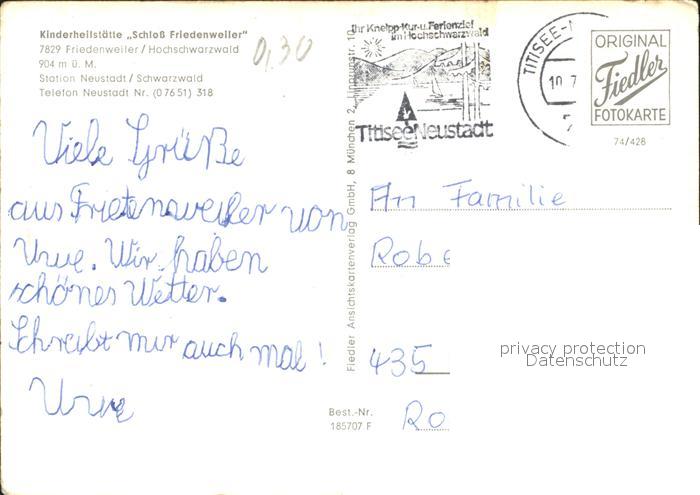 Kinderheilstätte „Schloß Friedenweiler"
7829 Friedenweiler/Hochschwarzwald
904 m ü. M.
Station Neustadt / Schwarzwald
Telefon Neustadt Nr. (07651) 318
0,30
Viele Grüße
aus Frietensweiler von
Uwe. Wir haben
schönes Wetter.
Schreibt mir auch mal!
Uwe
Fiedler Ansichtskartenverlag GmbH, 8 München 2, 10
Best.-Nr.
185707 F
Ihr Kneipp-Kur-u. Ferienziel
im Hochschwarzwald
Titisee Neustadt
TITISEE-N
10.7
ORIGINAL
Fiedler
FOTOKARTE
74/428
An Familie
Robe
435
Ro
privacy protection
Datenschutz